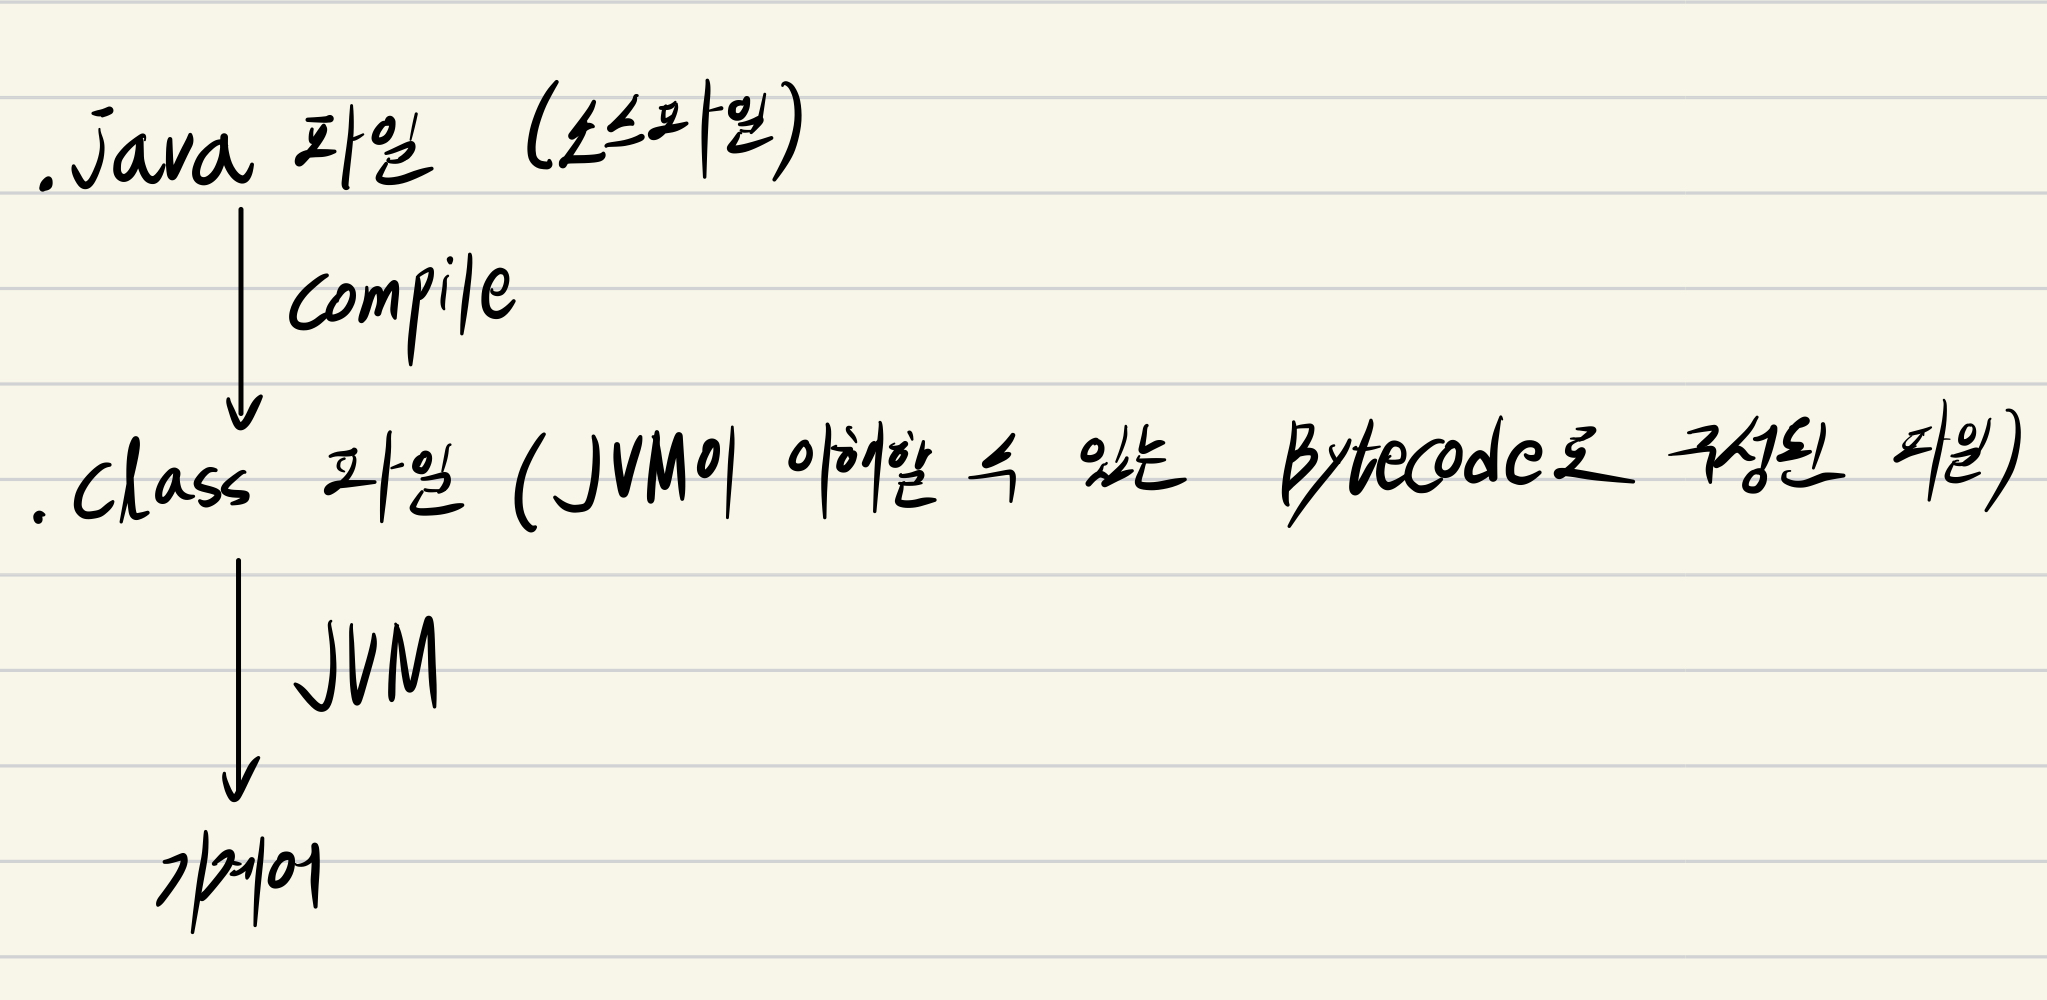 .java 파일 (소스파일)
compile
.class 파일 (JVM이 이해할 수 있는 Bytecode로 구성된 파일)
JVM
기계어